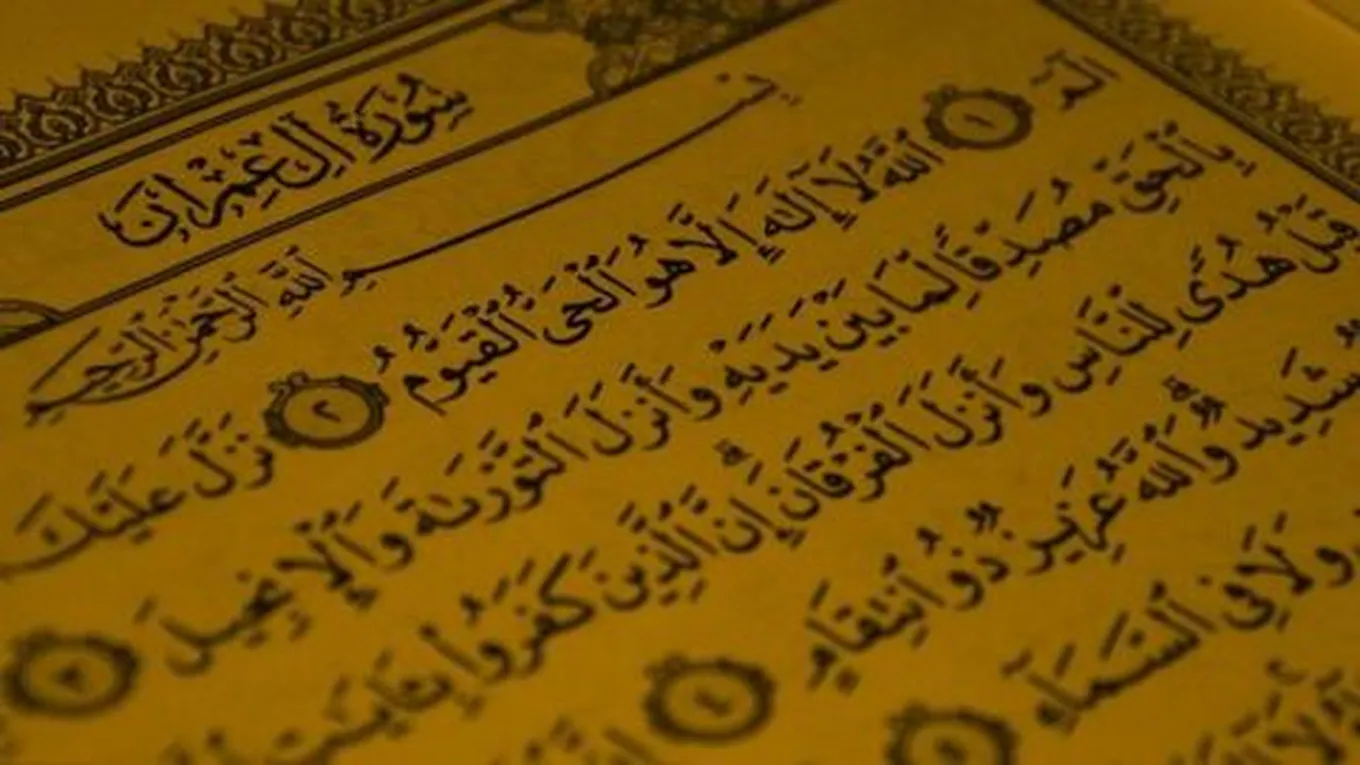 سُورَةُ آلِ عِمْرَانَ
بِسْمِ ٱللَّهِ ٱلرَّحْمَٰنِ ٱلرَّحِيمِ
الٓمٓ ١ ٱللَّهُ لَآ إِلَٰهَ إِلَّا هُوَ ٱلْحَىُّ ٱلْقَيُّومُ ٢ نَزَّلَ عَلَيْكَ
بِٱلْحَقِّ مُصَدِّقًا لِّمَا بَيْنَ يَدَيْهِ وَأَنزَلَ ٱلتَّوْرَىٰةَ وَٱلْإِنجِيلَ ٣
قَبْلُ هُدًى لِّلنَّاسِ وَأَنزَلَ ٱلْفُرْقَانَ ۗ إِنَّ ٱلَّذِينَ كَفَرُوا۟ بِـَٔايَـٰتِ
شَدِيدٌ ۗ وَٱللَّهُ عَزِيزٌ ذُو ٱنتِقَامٍ ٤
وَلَا فِى ٱلسَّمَآءِ ٥